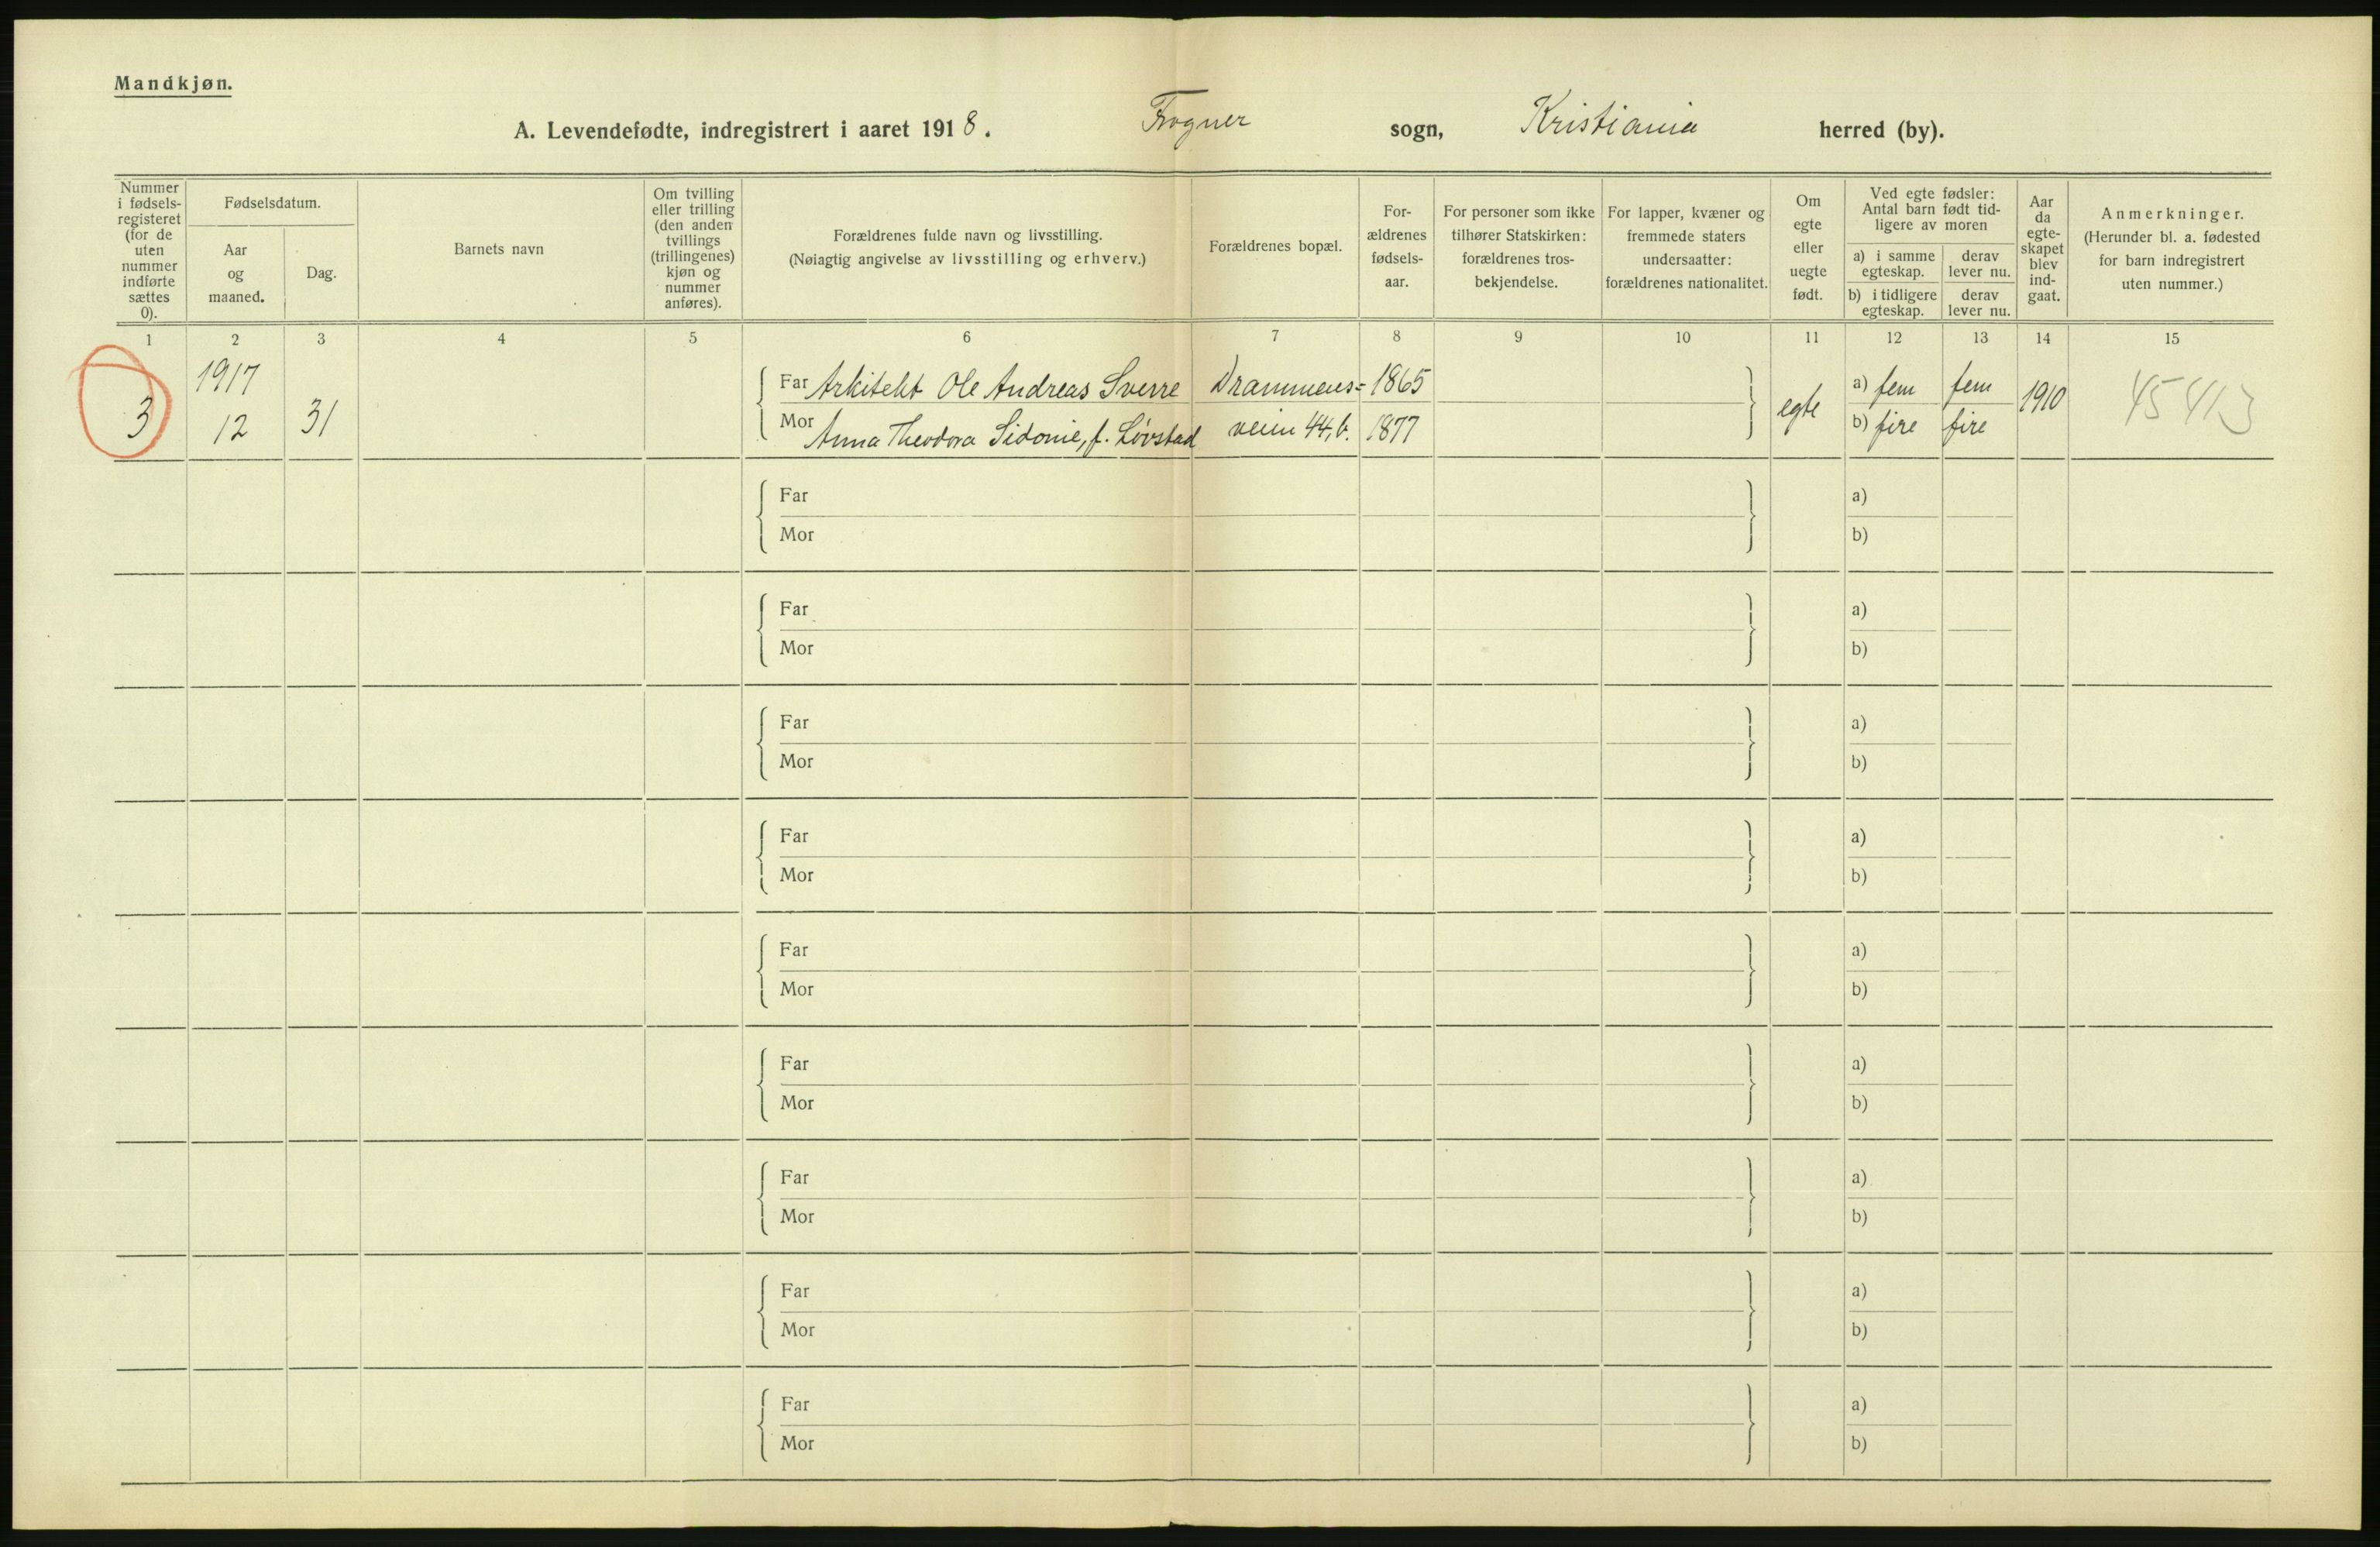 Mandkjøn.
A. Levendefødte, indregistrert i aaret 1918. Frogner sogn, Kristiania herred (by).
Nummer i fødsels-registeret (for de uten nummer indførte sættes 0).
Fødselsdatum.
Aar og maaned.
Dag.
Barnets navn
Om tvilling eller trilling (den anden tvillings (trillingenes) kjøn og nummer anføres).
Forældrenes fulde navn og livsstilling.
(Nøiagtig angivelse av livsstilling og erhverv.)
Forældrenes bopæl.
For-ældrenes fødsels-aar.
For personer som ikke tilhører Statskirken: forældrenes tros-bekjendelse.
For lapper, kvæner og fremmede staters undersaatter: forældrenes nationalitet.
Om egte eller uegte født.
Ved egte fødsler: Antal barn født tid-ligere av moren
a) i samme egteskap.
derav lever nu.
b) i tidligere egteskap.
derav lever nu.
Aar da egte-skapet blev ind-gaat.
Anmerkninger.
(Herunder bl. a. fødested for barn indregistrert uten nummer.)
1 2 3 4 5 6 7 8 9 10 11 12 13 14 15
3 1917 12 31
Far Arkitekt Ole Andreas Sverre Drammens= 1865
Mor Anna Theodora Sidonie, f. Løvstad veien 44, b. 1877
egte
a) fem fem
b) fire fire
1910
45413
Far a)
Mor b)
Far a)
Mor b)
Far a)
Mor b)
Far a)
Mor b)
Far a)
Mor b)
Far a)
Mor b)
Far a)
Mor b)
Far a)
Mor b)
Far a)
Mor b)